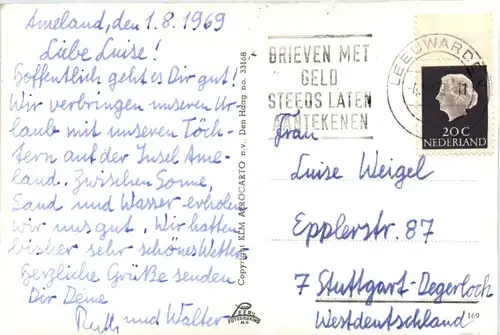 Ameland, den 1.8.1969
Liebe Luise!
Hoffentlich geht es Dir gut!
Wir verbringen unseren Ur-
laub mit unseren Töch-
tern auf der Insel Ame-
land. Zwischen Sonne,
Sand und Wasser erholen
wir uns gut. Wir hatten
bisher sehr schönes Wetter
Herzliche Grüße senden
Dir Deine
Ruth und Walter
Copyright KLM AEROCARTO n.v. Den Haag no. 33168
BRIEVEN MET
GELD
STEEDS LATEN
AANTEKENEN
LEEUWARDEN
20 C
NEDERLAND
Frau
Luise Weigel
Epplerstr. 87
7 Stuttgart-Degerloch
Westdeutschland
169